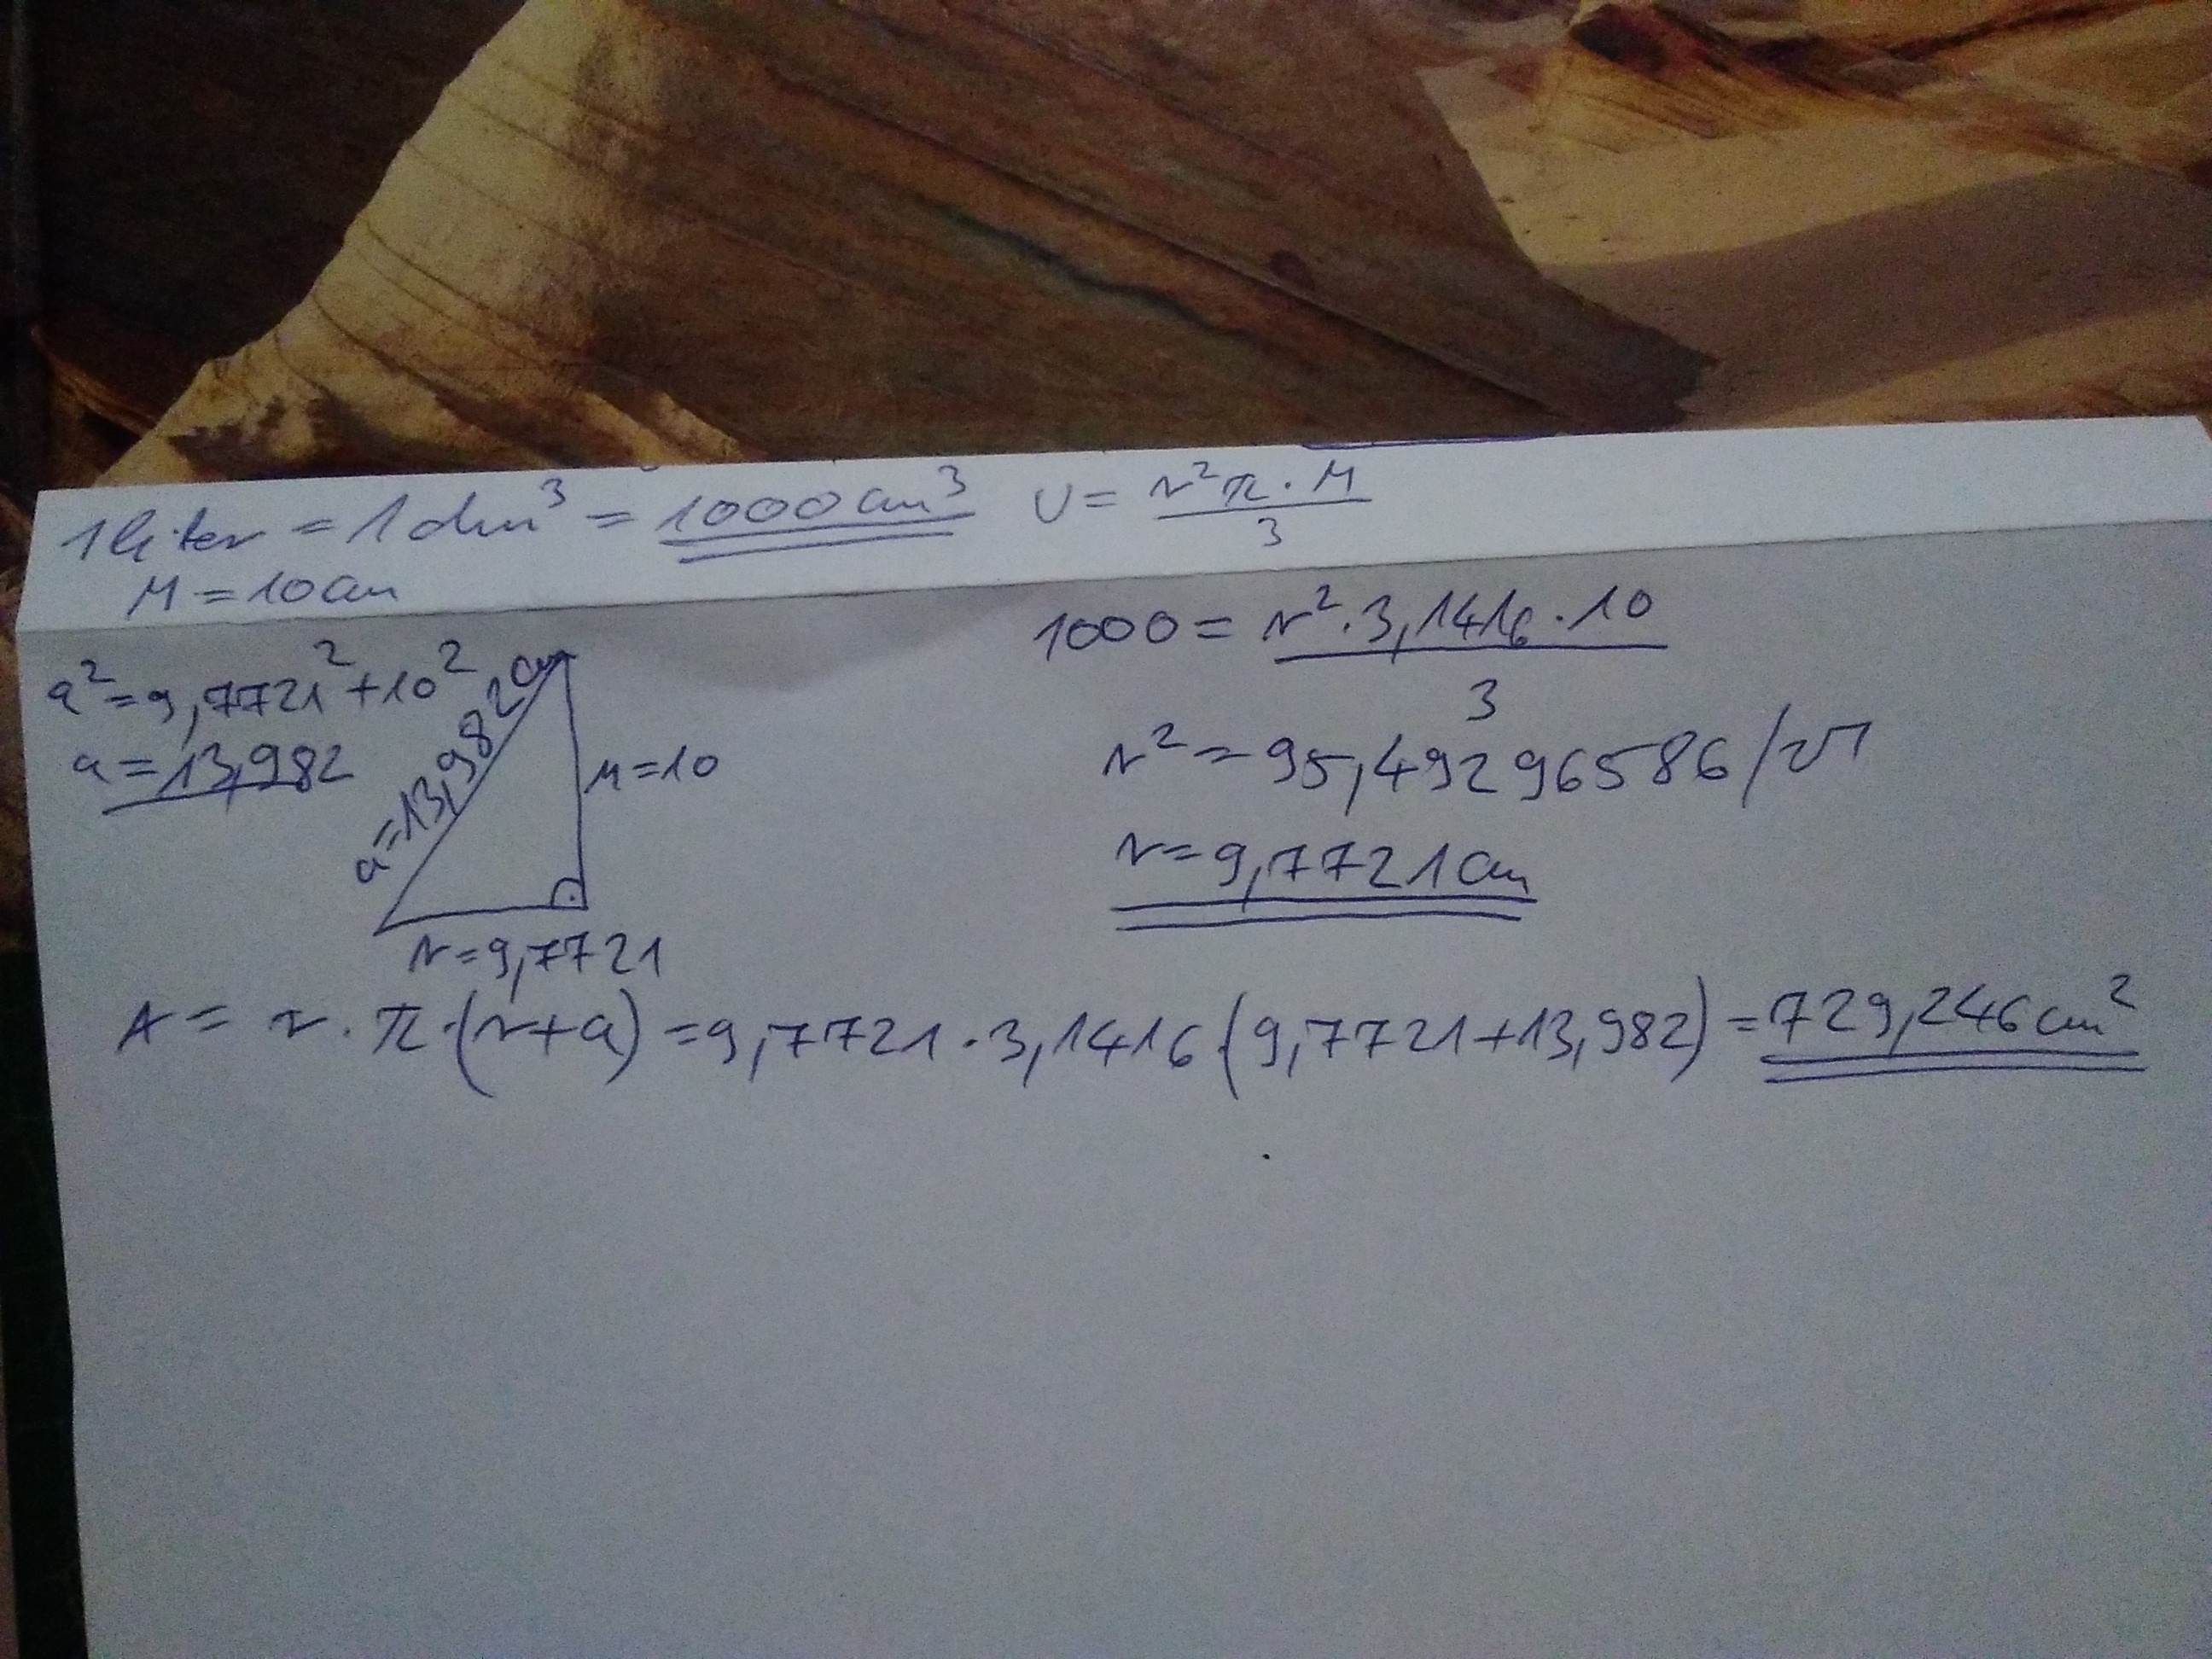 1 liter = 1 dm³ = 1000 cm³
V = r²π · M / 3
M = 10 cm
1000 = r² · 3,1416 · 10 / 3
a² = 9,7721² + 10²
a = 13,982
a = 13,982 cm
M = 10
r = 9,7721
r² = 95,4929 6586 /√
r = 9,7721 cm
A = r · π · (r + a) = 9,7721 · 3,1416 · (9,7721 + 13,982) = 729,246 cm²